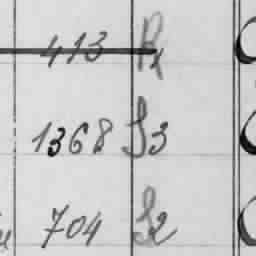 413 R1
1368 S3
704 S2